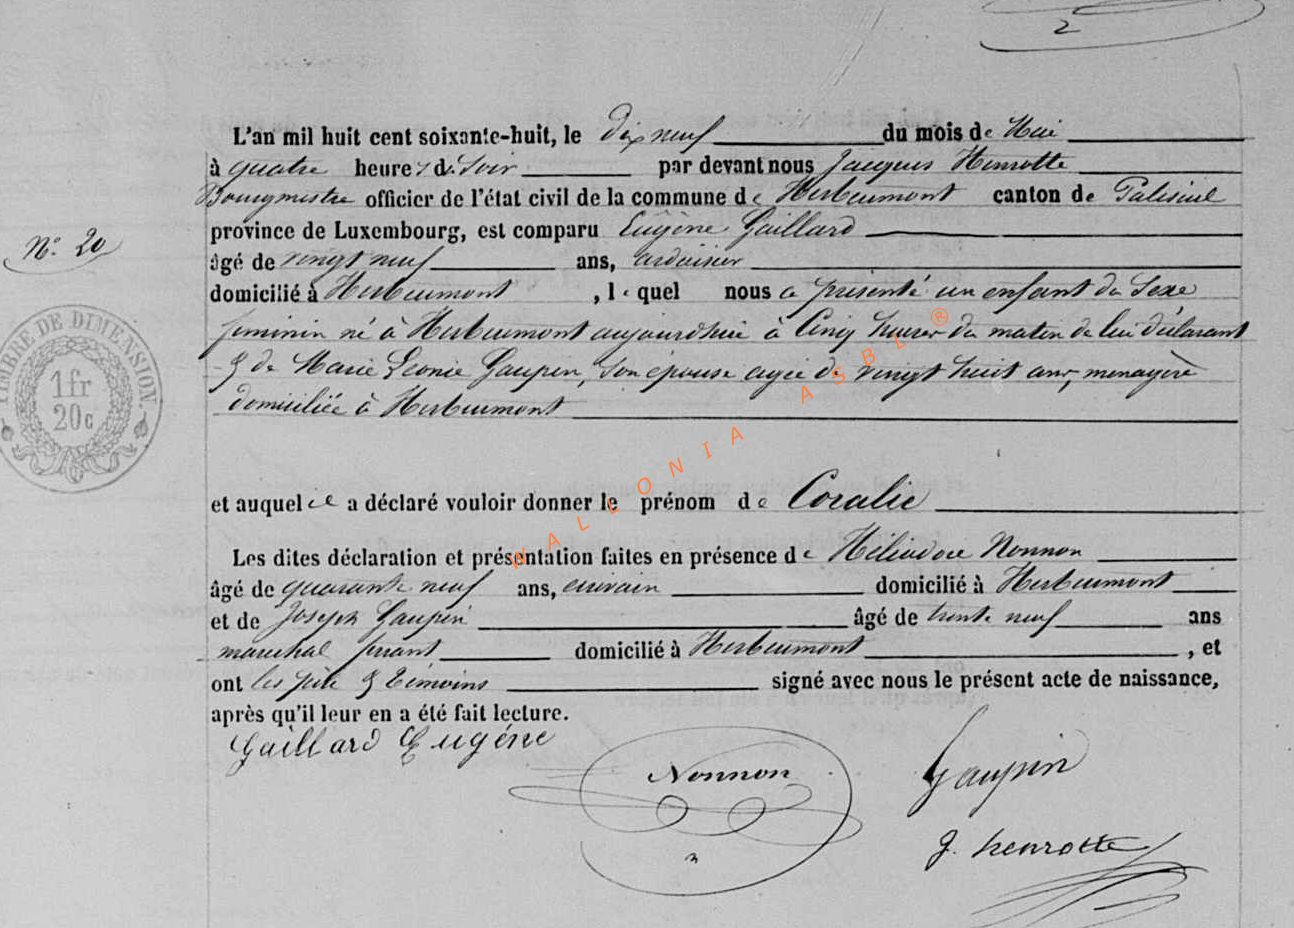 2
L'an mil huit cent soixante-huit, le dix neuf du mois de Mai
à quatre heures du Soir par devant nous Jacques Henrotte
Bourgmestre officier de l'état civil de la commune de Herbeumont canton de Paliseul
province de Luxembourg, est comparu Eugène Gaillard
N° 20
âgé de vingt neuf ans, ardoisier
domicilié à Herbeumont, lequel nous a présenté un enfant du Sexe
feminin né à Herbeumont aujourdhui à Cinq heures du matin de lui déclarant
& de Marie Léonie Gaupin, Son épouse agée de vingt huit ans, menagère
domiciliée à Herbeumont
TIMBRE DE DIMENSION
1fr
20c
et auquel il a déclaré vouloir donner le prénom de Coralie
Les dites déclaration et présentation faites en présence de Héliodore Nonnon
âgé de quarante neuf ans, écrivain domicilié à Herbeumont
et de Joseph Gaupin âgé de trente neuf ans
marechal ferrant domicilié à Herbeumont, et
ont les père & témoins signé avec nous le présent acte de naissance,
après qu'il leur en a été fait lecture.
Gaillard Eugéne
Nonnon
Gaupin
J. henrotte
WALLONIA ASBL ®